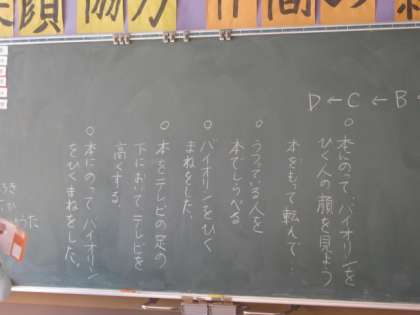 笑顔
協力
仲間の
D ← C ← B
○本にのって、バイオリンを
ひく人の顔を見よう
本をもって転んで…
○うつっている人を
本でしらべる
○バイオリンをひく
まねをした。
○本をテレビの足の
下においてテレビを
高くする。
○本にのってバイオリン
をひくまねをした。